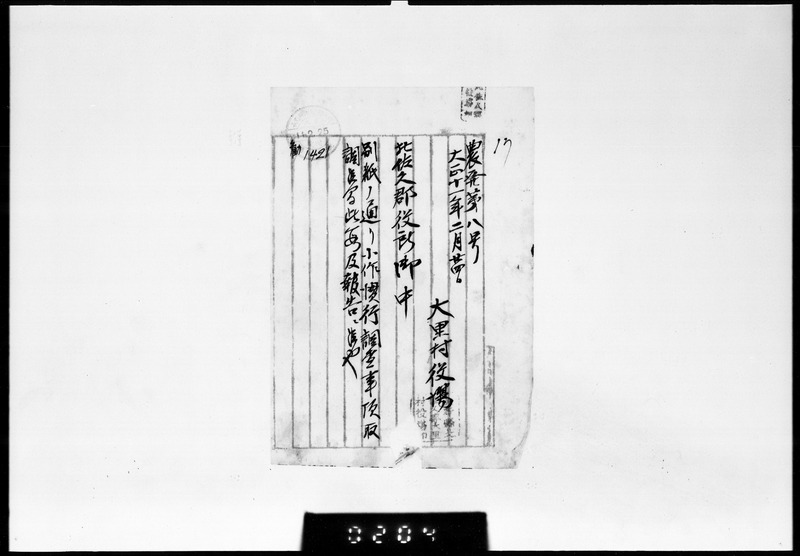 17
農発第八号
大正十一年二月廿四日
大里村役場
北佐久郡役所御中
別紙ノ通リ小作慣行調査事項取
調候ニ此段及報告候也
11.2.25
1421
0204